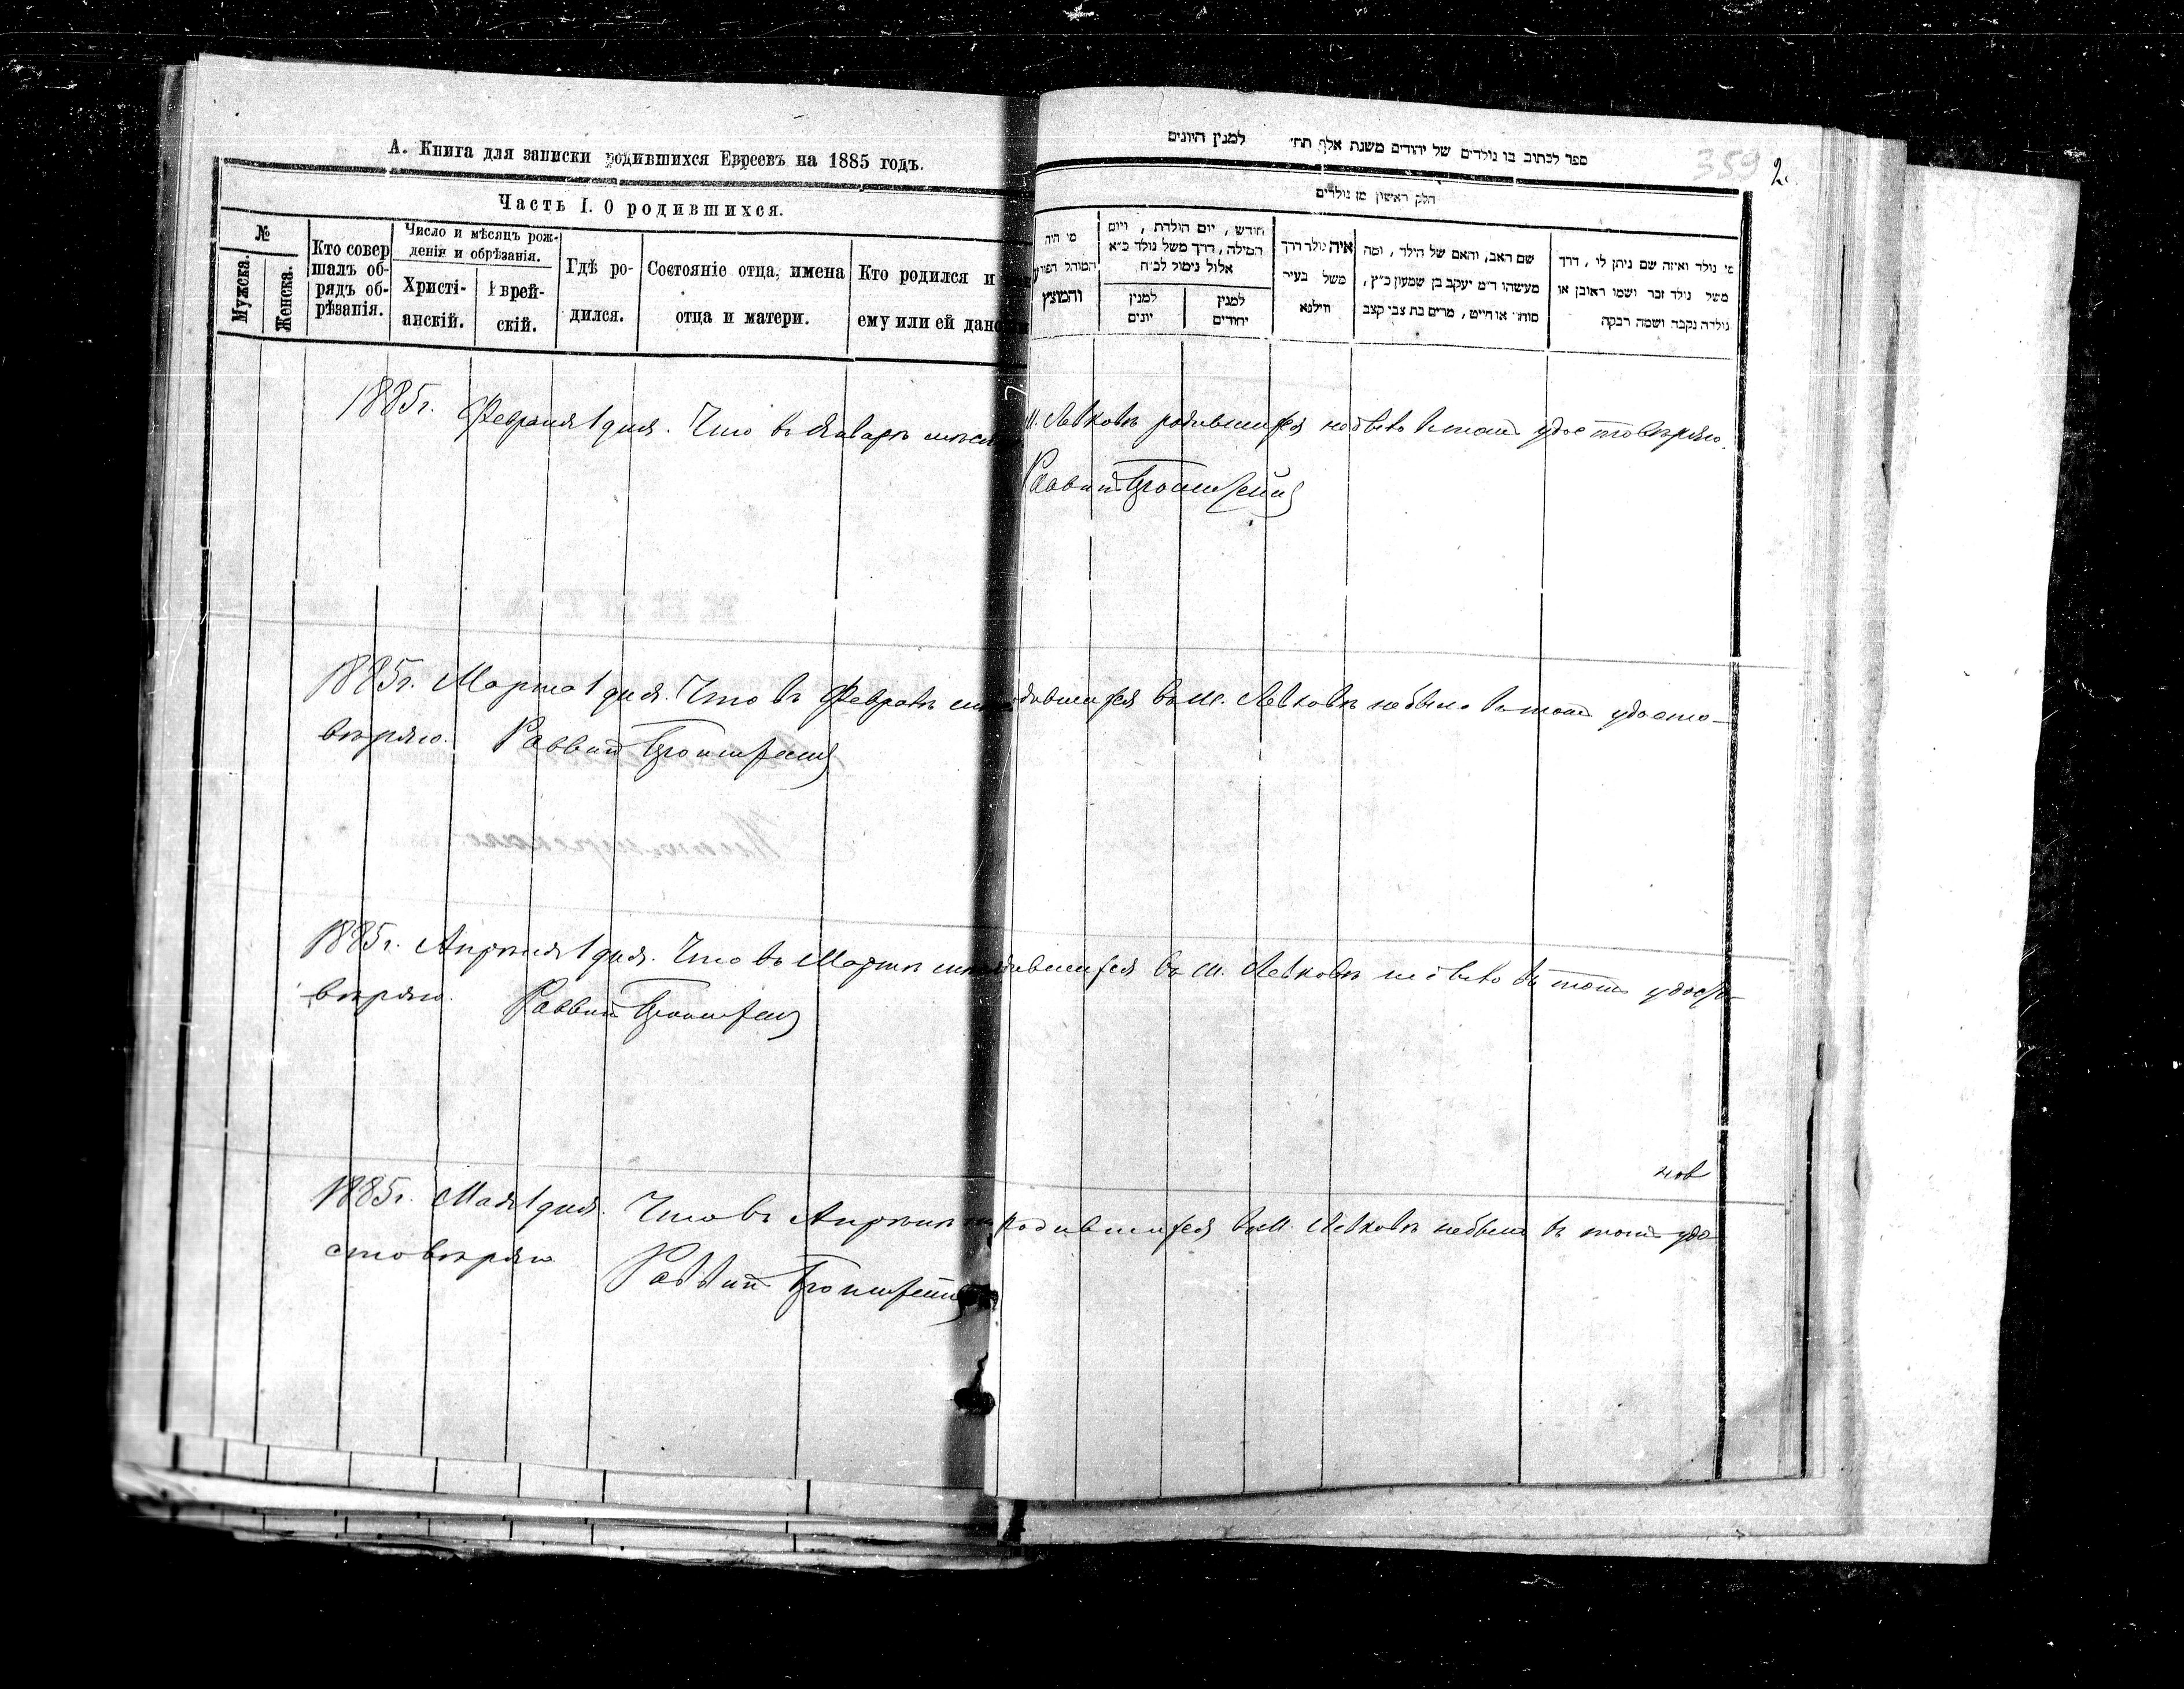 А. Книга для записки родившихся Евреевъ на 1885 годъ.
Часть I. О родившихся.
№
Мужска.
Женска.
Кто совер
шалъ об-
рядъ об-
рѣзанія.
Число и мѣсяцъ рож-
денія и обрѣзанія.
Христі-
анскій.
Еврей-
скій.
Гдѣ ро-
дился.
Состояніе отца, имена
отца и матери.
Кто родился и
ему или ей дано
ספר לכתוב בו נולדים של יהודים משנת אלף תת׳ למנין היונים
359 2.
חלק ראשון מן נולדים
מי היה
המוהל
והמוצץ
חודש, יום הולדת, ויום
המילה, דרך משל נולד כ״א
אלול נימול לכ״ח
למנין
יונים
למנין
יהודים
איה נולד דרך
משל בעיר
ווילנא
שם האב, והאם של הילד, ומה
מעשהו ד״מ יעקב בן שמעון כ״ץ,
סוחר או חייט, מרים בת צבי קצב
מי נולד ואיזה שם ניתן לו, דרך
משל נולד זכר ושמו ראובן או
נולדה נקבה ושמה רבקה
1885г. Февраля 1 дня. Что въ Январѣ м. Левковѣ родившихся небыло въ томъ удостовѣряю.
Раввинъ
1885г. Марта 1 дня. Что въ Февралѣ родившихся въ м. Левковѣ небыло въ томъ удосто-
вѣряю. Раввинъ
1885г. Апрѣля 1 дня. Что въ Мартѣ родившихся въ м. Левковѣ небыло въ томъ удосто-
вѣряю. Раввинъ
1885г. Мая 1 дня. Что въ Апрѣлѣ родившихся въ м. Левковѣ небыло въ томъ удо-
стовѣряю
Раввинъ